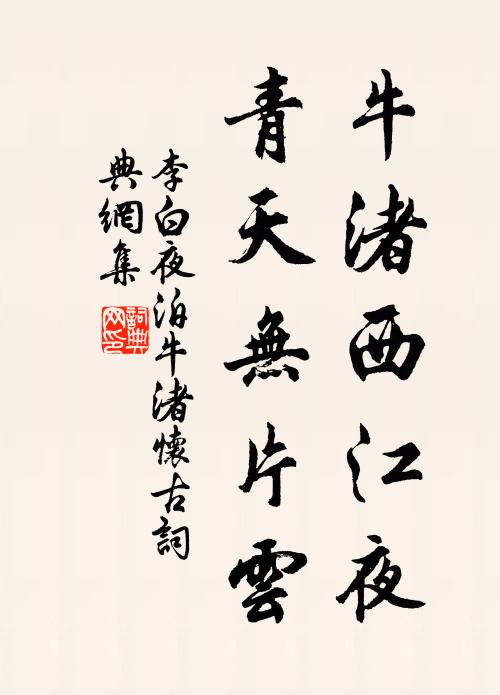 牛渚西江夜
青天無片雲
李白夜泊牛渚懷古詞
典網集
詞典
网印